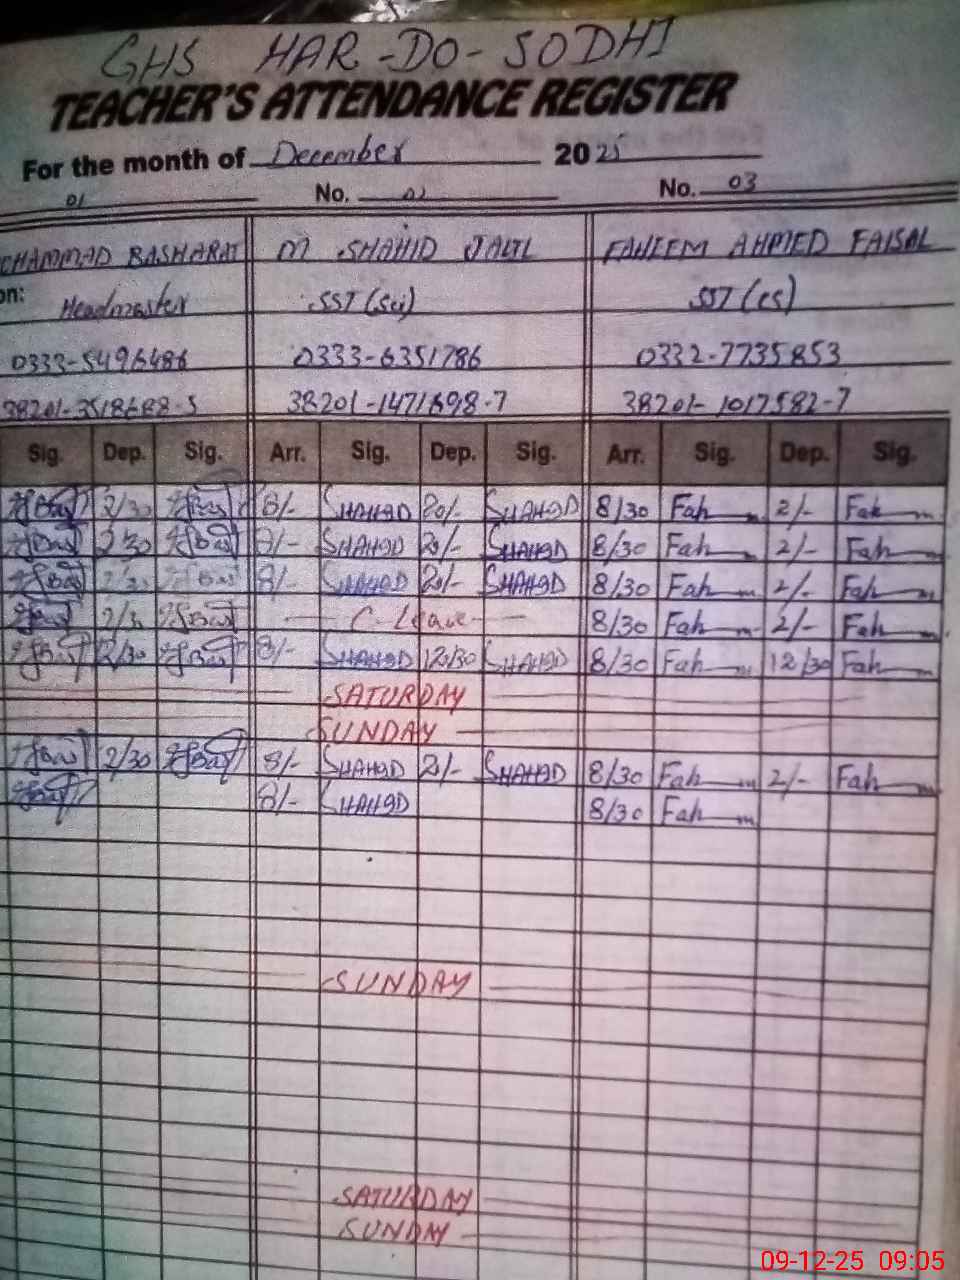 GHS HAR-DO-SODHI
TEACHER'S ATTENDANCE REGISTER
For the month of December 2025
01 No. 02 No. 03
HAMMAD BASHARAT M SHAHID JALIL FAHEEM AHMED FAISAL
on: Headmaster SST (Sci) SST (cs)
0333-5496486 0333-6351786 0332-7735853
38201-3518688-5 38201-1471698-7 38201-1017582-7
Sig. Dep. Sig. Arr. Sig. Dep. Sig. Arr. Sig. Dep. Sig.
2/30 8/- SHAH9D 20/- SHAH9D 8/30 Fah 2/- Fah
2/30 8/- SHAH9D 20/- SHAH9D 8/30 Fah 2/- Fah
2/30 8/- SHAH9D 20/- SHAH9D 8/30 Fah 2/- Fah
2/30 C-Leave 8/30 Fah 2/- Fah
12/30 8/- SHAH9D 12/30 SHAH9D 8/30 Fah 12/30 Fah
SATURDAY
SUNDAY
2/30 8/- SHAH9D 2/- SHAH9D 8/30 Fah 2/- Fah
8/- SHAH9D 8/30 Fah
SUNDAY
SATURDAY
SUNDAY
09-12-25 09:05